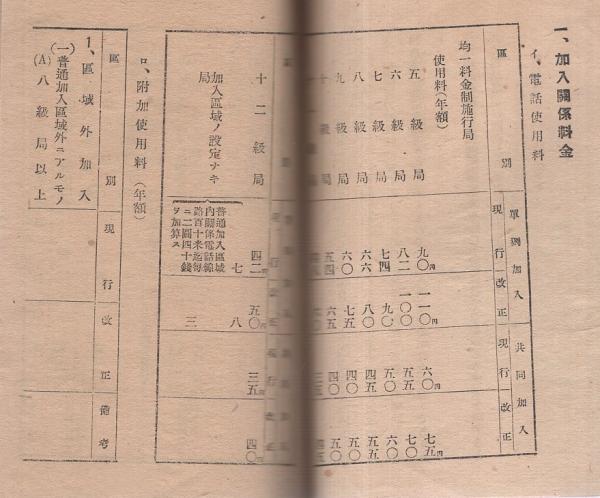 一、加入關係料金
イ、電話使用料
區別
單獨加入
共同加入
現行
改正
現行
改正
均一料金制施行局
使用料(年額)
五級局 九〇円 一一〇円 六〇円 七五円
六級局 八二 一〇〇 五五 七〇
七級局 七四 九〇 五〇 六〇
八級局 六六 八〇 四五 五五
九級局 六〇 七五 四〇 五〇
十二級局 四二 五〇円 三五 四〇円
加入區域ノ設定ナキ局 七 八
普通加入區域
內關係電話線
路百十米迄每
ニ二圓四十錢
ヲ加算ス
三
ロ、附加使用料(年額)
區別
現行
改正
備考
1、區域外加入
(一)普通加入區域外ニアルモノ
(A)八級局以上